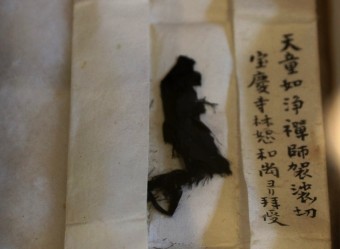 天童如浄禪師袈裟切
宝慶寺林恕和尚ヨリ拝受